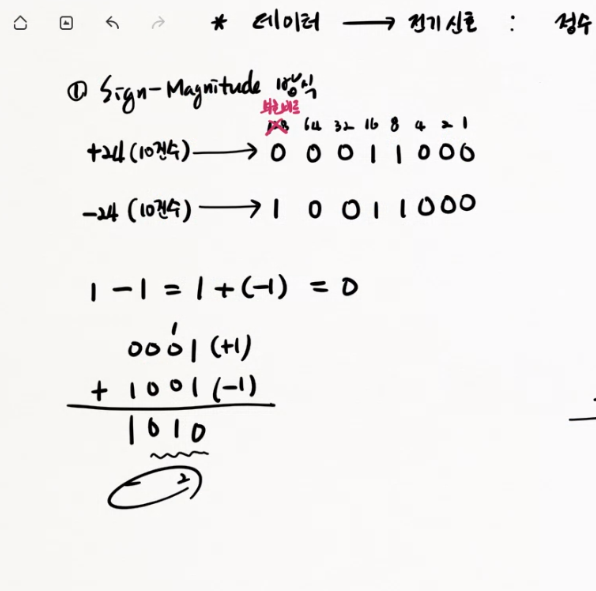 * 데이터 → 전기신호 : 정수
① Sign-Magnitude 형식
부호비트
128 64 32 16 8 4 2 1
+24 (10진수) → 0 0 0 1 1 0 0 0
-24 (10진수) → 1 0 0 1 1 0 0 0
1 - 1 = 1 + (-1) = 0
1
0001 (+1)
+ 1001 (-1)
1010
-2